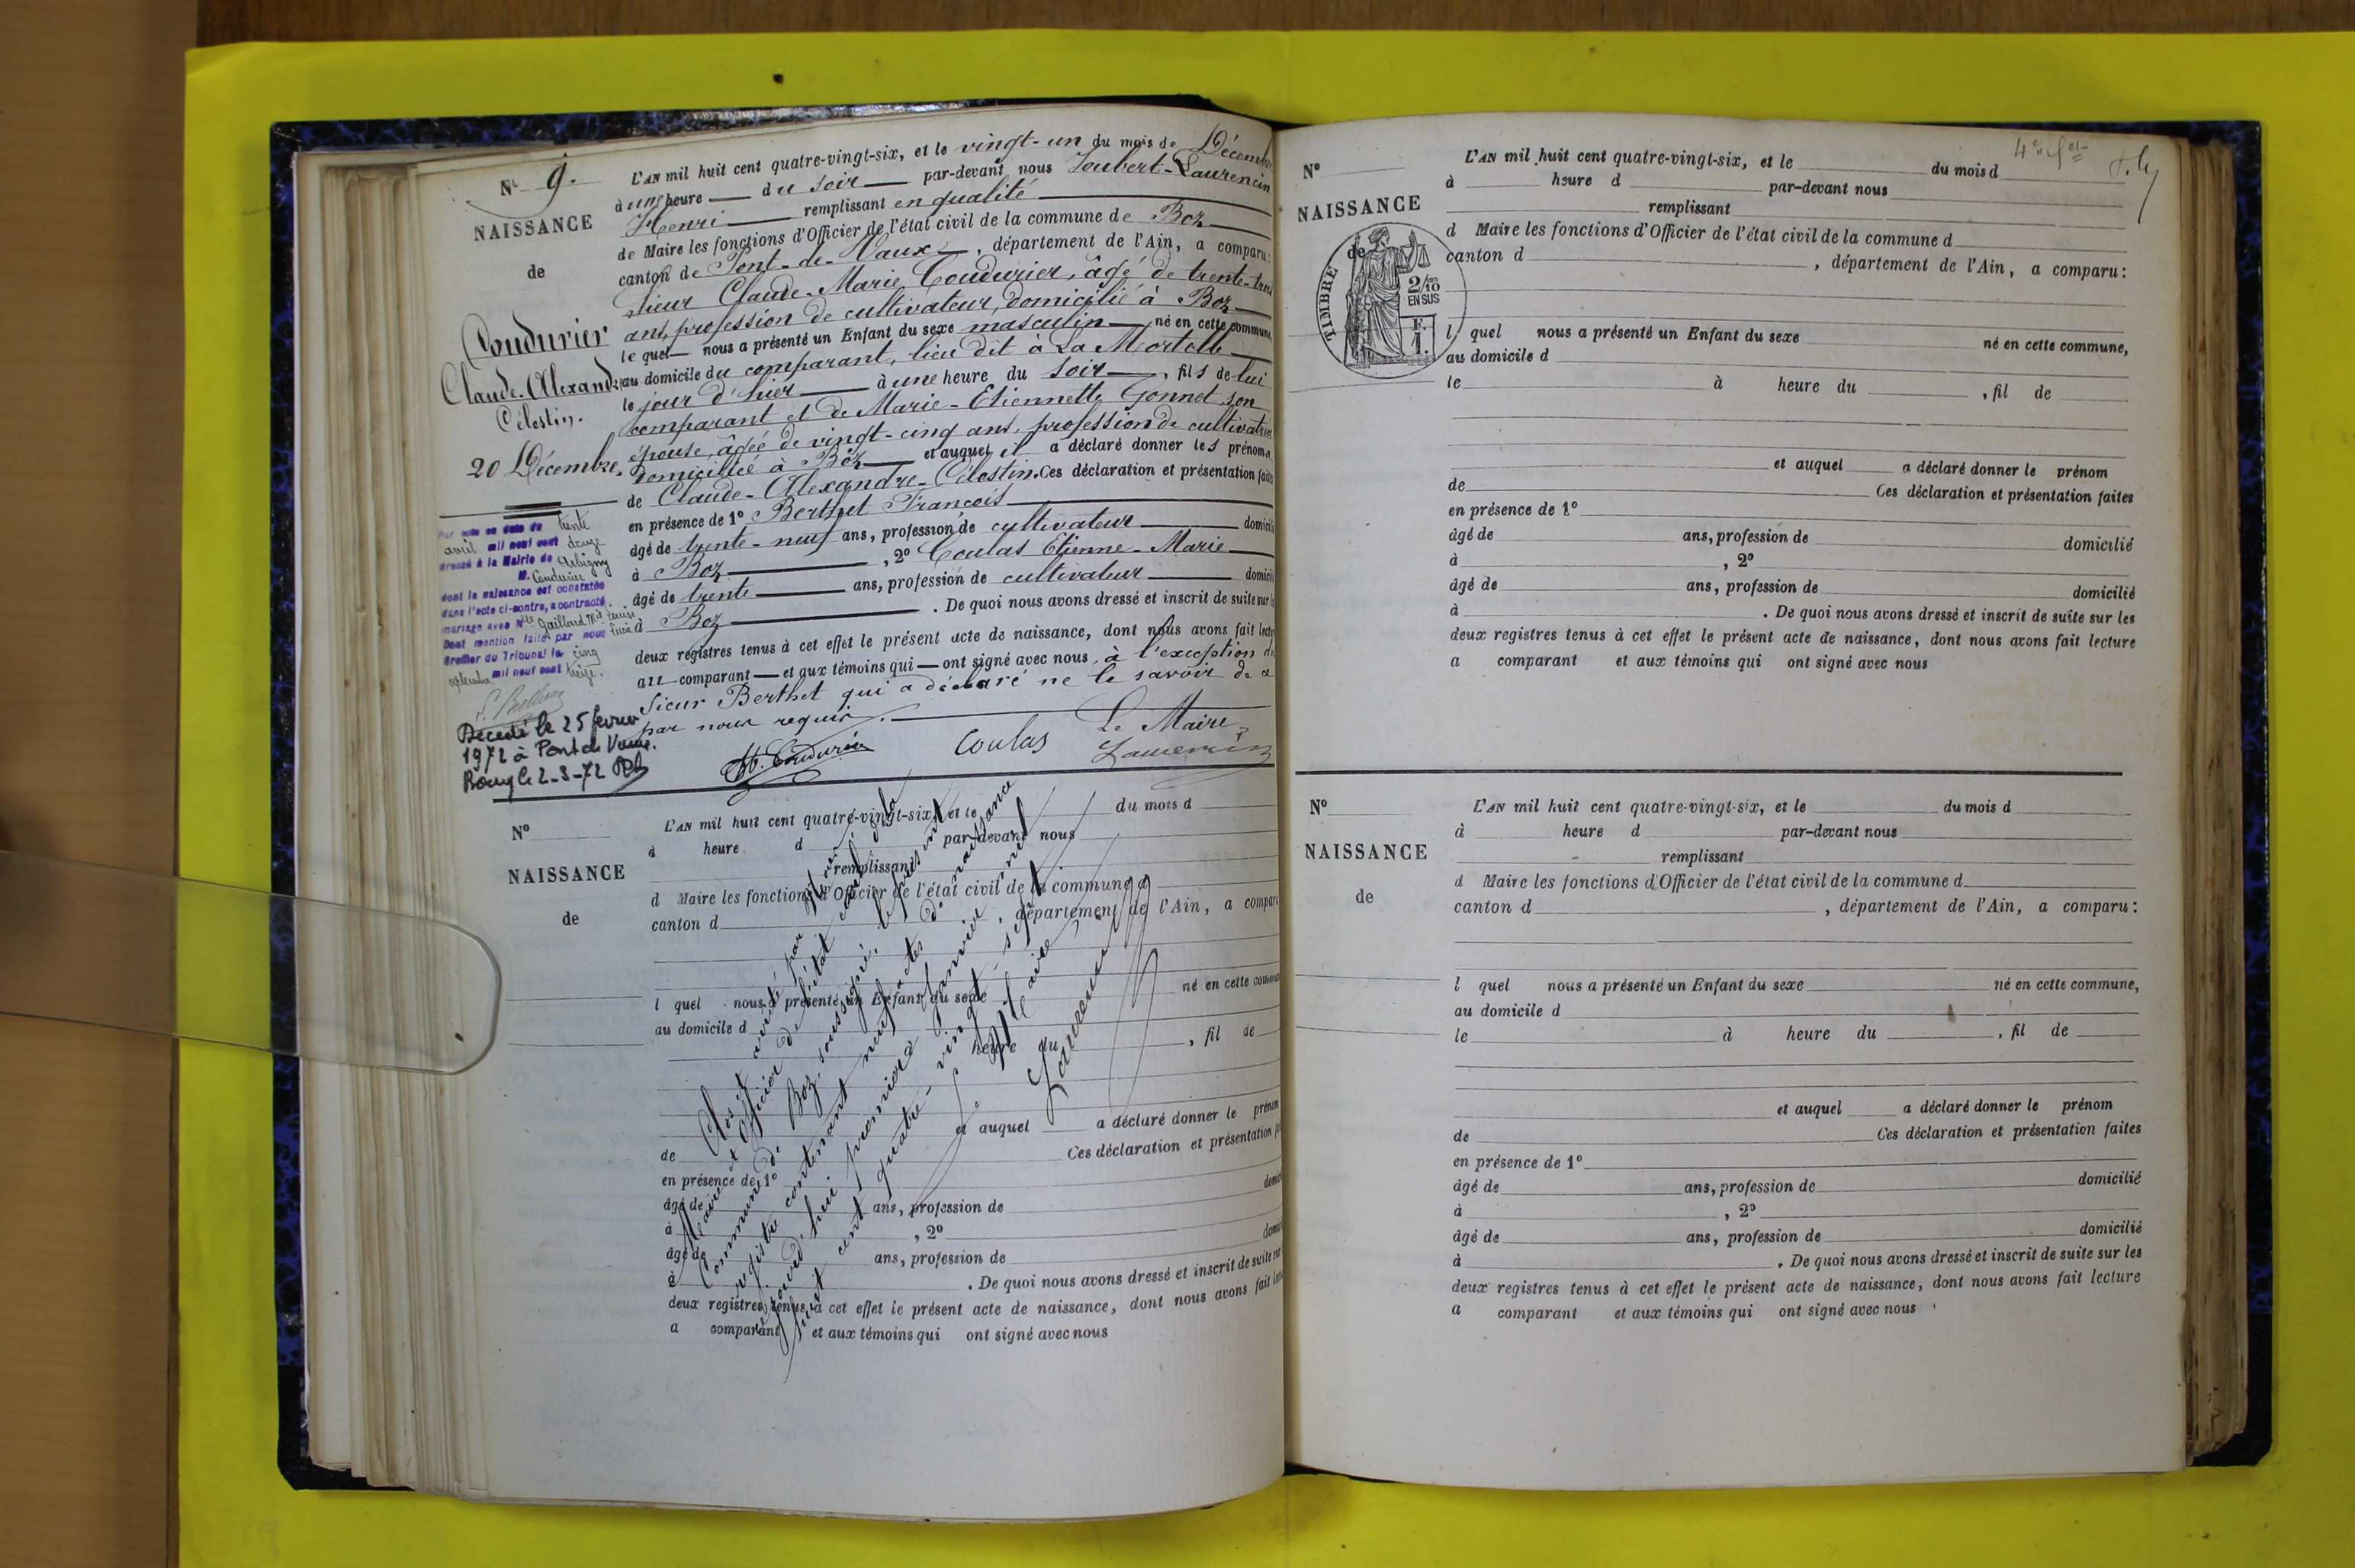 N° 9.
NAISSANCE
de
Coudurier
Claude-Alexandre
Célestin.
20 Décembre.
Par acte en date du trente
avril mil neuf cent douze
dressé à la Mairie de Arbigny
M. Coudurier
dont la naissance est constatée
dans l'acte ci-contre, a contracté
mariage avec Mlle Gaillard
Dont mention faite par nous
Greffier du Tribunal le cinq
septembre mil neuf cent treize.
Décédé le 25 février
1972 à Pont de Vaux.
Bourg le 2-3-72
L'AN mil huit cent quatre-vingt-six, et le vingt-un du mois de Décembre
à une heure du soir par-devant nous Joubert-Laurencin
Henri remplissant en qualité
de Maire les fonctions d'Officier de l'état civil de la commune de Boz
canton de Pont-de-Vaux, département de l'Ain, a comparu:
sieur Claude-Marie Coudurier, âgé de trente-trois
ans, profession de cultivateur, domicilié à Boz
le quel nous a présenté un Enfant du sexe masculin né en cette commune,
au domicile du comparant, lieu dit à La
le jour d'hier à une heure du soir, fils de lui
comparant et de Marie-Etiennette Gonnet, son
épouse, âgée de vingt-cinq ans, profession de cultivatrice
domiciliée à Boz et auquel il a déclaré donner les prénoms
de Claude-Alexandre-Célestin. Ces déclaration et présentation faites
en présence de 1° Berthet François
âgé de trente-neuf ans, profession de cultivateur domicilié
à Boz, 2° Coulas Etienne-Marie
âgé de trente ans, profession de cultivateur domicilié
à Boz. De quoi nous avons dressé et inscrit de suite sur les
deux registres tenus à cet effet le présent acte de naissance, dont nous avons fait lecture
au comparant et aux témoins qui ont signé avec nous, à l'exception du
sieur Berthet qui a déclaré ne le savoir de ce
par nous requis.
Coudurier Coulas Le Maire
Laurencin
N°
NAISSANCE
de
L'AN mil huit cent quatre-vingt-six, et le du mois d
à heure d par-devant nous
remplissant
d Maire les fonctions d'Officier de l'état civil de la commune d
canton d , département de l'Ain, a comparu
l quel nous a présenté un Enfant du sexe né en cette commune
au domicile d
heure du , fil de
et auquel a déclaré donner le prénom
de Ces déclaration et présentation
en présence de 1°
âgé de ans, profession de
à , 2°
âgé de ans, profession de
à . De quoi nous avons dressé et inscrit de suite sur
deux registres tenus à cet effet le présent acte de naissance, dont nous avons fait
a comparant et aux témoins qui ont signé avec nous
Clos et arrêté par
Maire et Officier de l'état civil de la
Commune de Boz, soussigné, le présent
registre contenant neuf actes de naissance
aujourd'hui premier Janvier mil
huit cent quatre-vingt-sept.
Le Maire,
Laurencin
N°
NAISSANCE
de
TIMBRE
2/10
EN SUS
F.
1.
L'AN mil huit cent quatre-vingt-six, et le du mois d
à heure d par-devant nous
remplissant
d Maire les fonctions d'Officier de l'état civil de la commune d
canton d , département de l'Ain, a comparu:
l quel nous a présenté un Enfant du sexe né en cette commune,
au domicile d
le à heure du , fil de
et auquel a déclaré donner le prénom
de Ces déclaration et présentation faites
en présence de 1°
âgé de ans, profession de domicilié
à , 2°
âgé de ans, profession de domicilié
à . De quoi nous avons dressé et inscrit de suite sur les
deux registres tenus à cet effet le présent acte de naissance, dont nous avons fait lecture
a comparant et aux témoins qui ont signé avec nous
N°
NAISSANCE
de
L'AN mil huit cent quatre-vingt-six, et le du mois d
à heure d par-devant nous
remplissant
d Maire les fonctions d'Officier de l'état civil de la commune d
canton d , département de l'Ain, a comparu:
l quel nous a présenté un Enfant du sexe né en cette commune,
au domicile d
le à heure du , fil de
et auquel a déclaré donner le prénom
de Ces déclaration et présentation faites
en présence de 1°
âgé de ans, profession de domicilié
à , 2°
âgé de ans, profession de domicilié
à . De quoi nous avons dressé et inscrit de suite sur les
deux registres tenus à cet effet le présent acte de naissance, dont nous avons fait lecture
a comparant et aux témoins qui ont signé avec nous